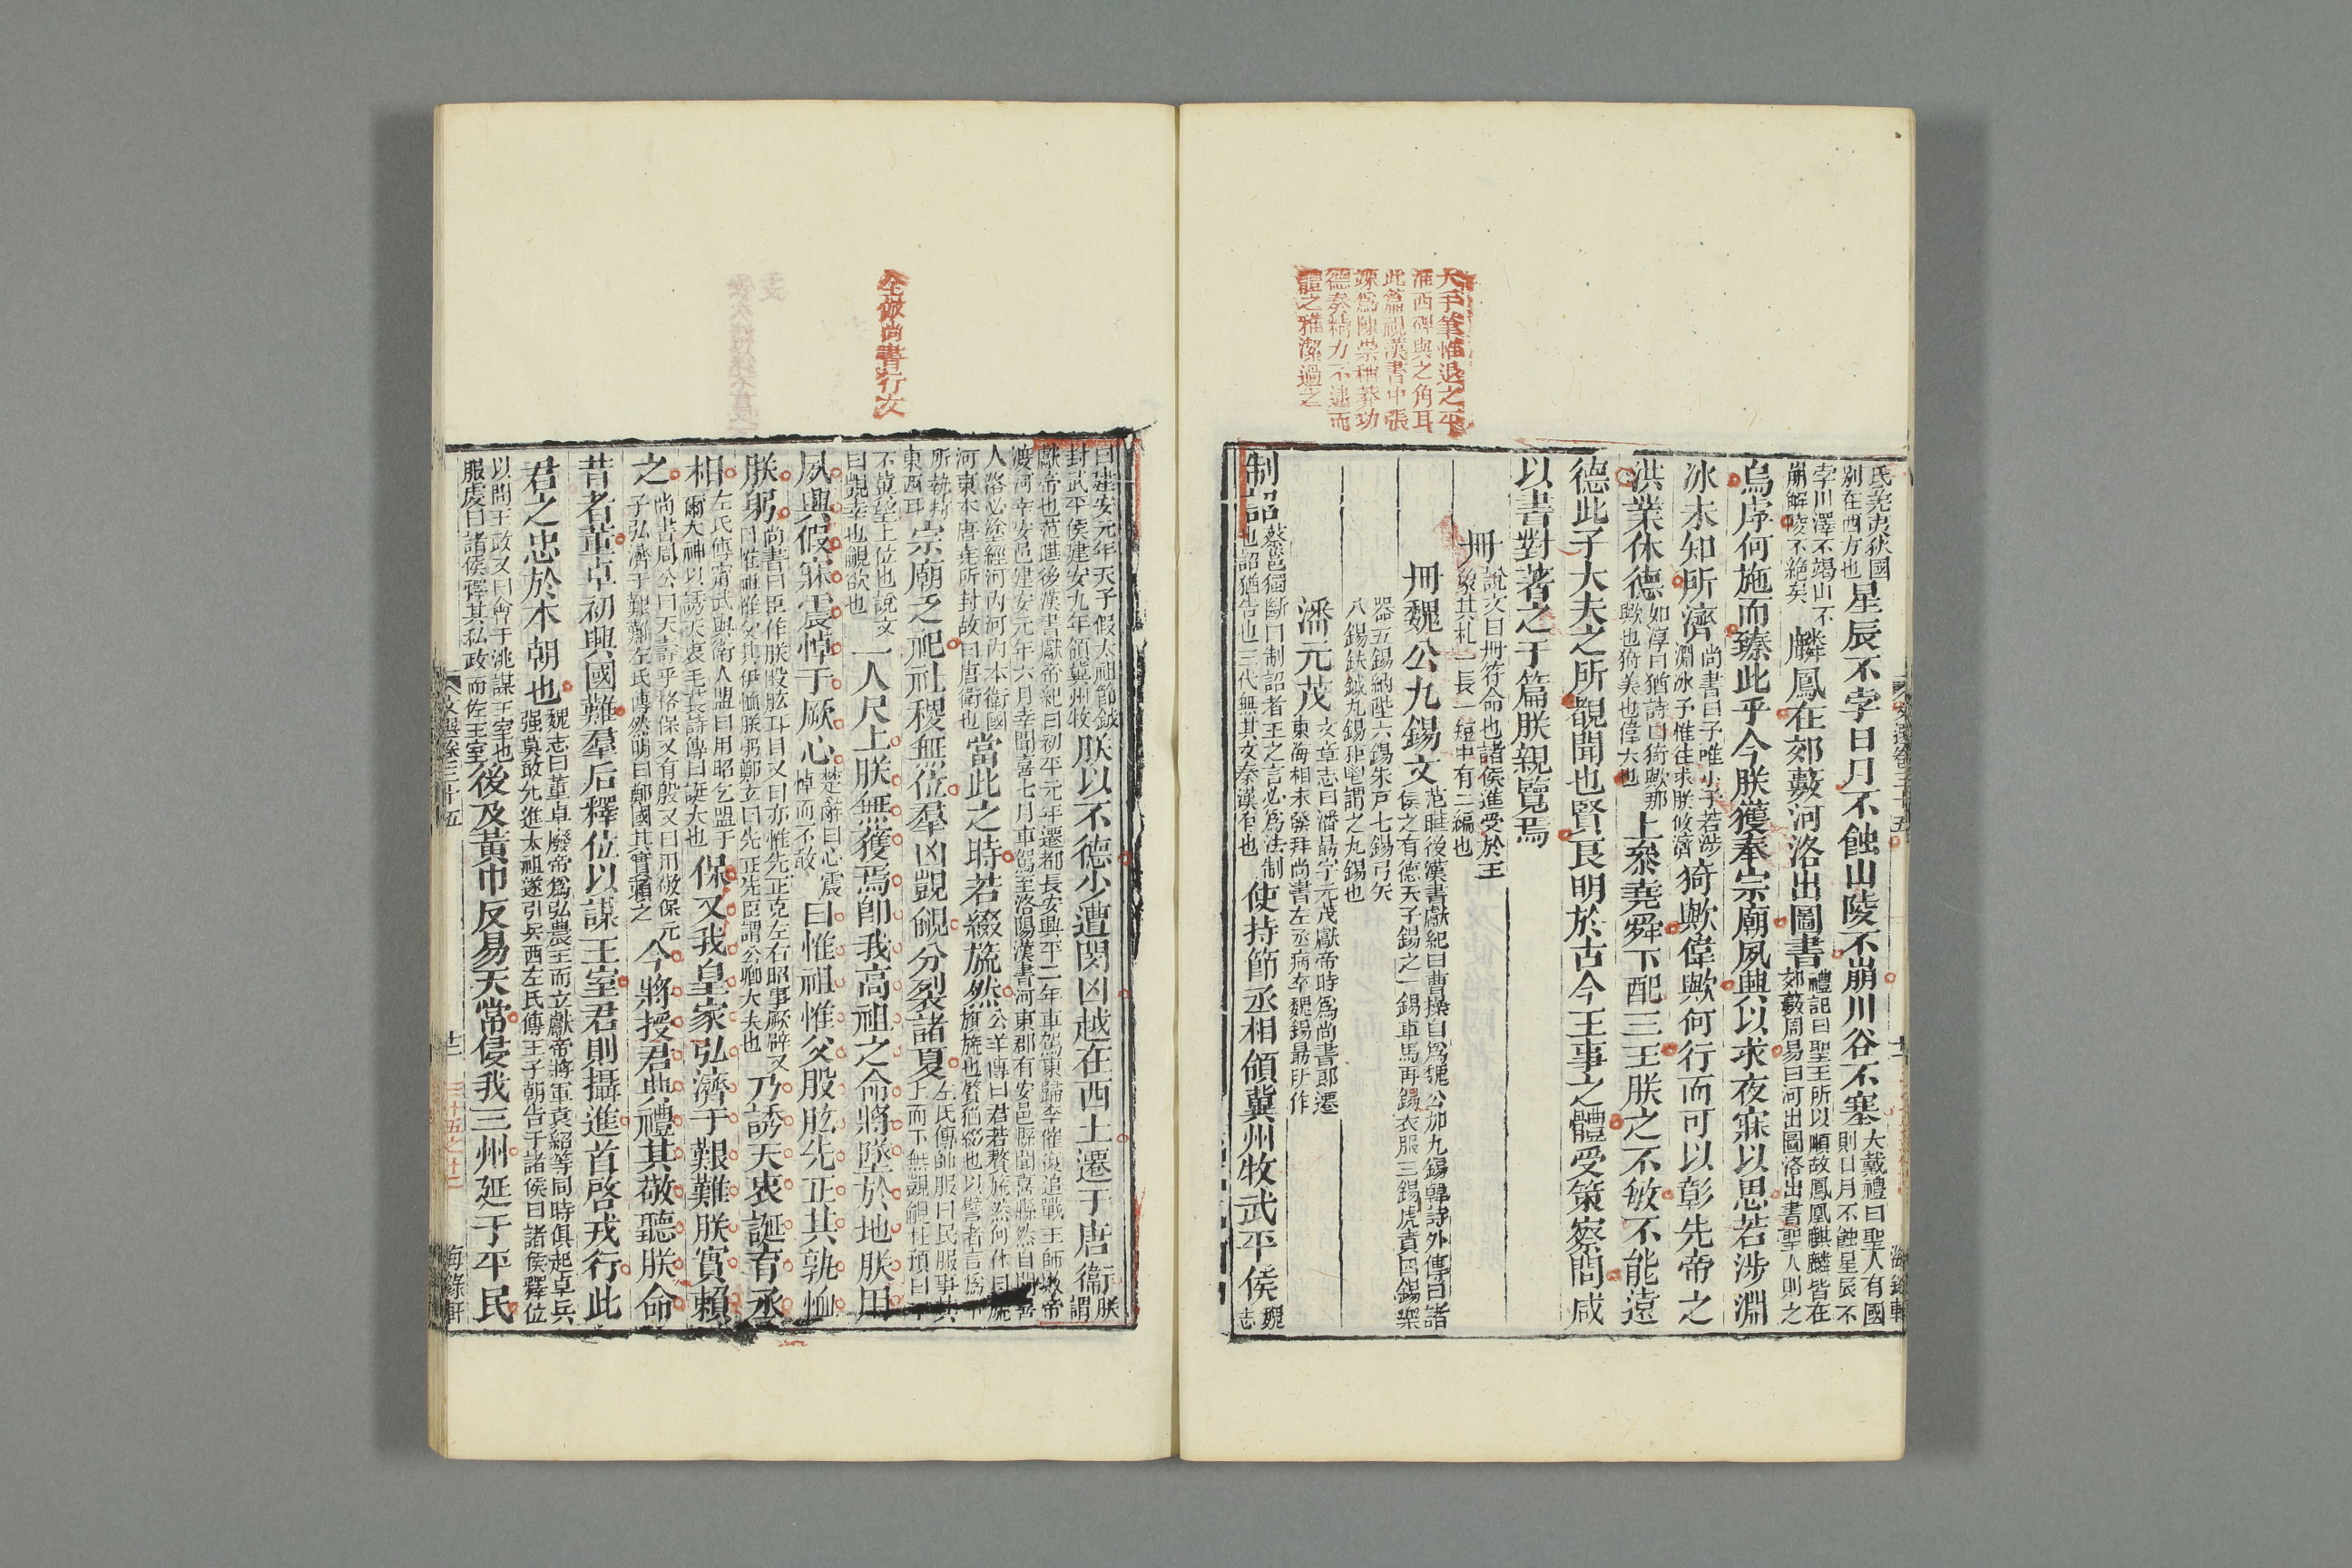 大手筆惟退之平
淮西碑與之角耳
此篇視漢書中張
竦為陳崇稱莽功
德奏精力不逮而
體之雅潔過之
氏羌夷狄國
別在西方也
星辰不孛日月不蝕山陵不崩川谷不塞
大戴禮曰聖人有國
則日月不蝕星辰不
孛川澤不竭山不
崩解陵不絕矣
麟鳳在郊藪河洛出圖書
禮記曰聖王所以順故鳳凰麒麟皆在
郊藪周易曰河出圖洛出書聖人則之
烏虖何施而臻此乎今朕獲奉宗廟夙興以求夜寐以思若涉淵
冰未知所濟
尚書曰予唯小子若涉
淵冰予惟往求朕攸濟
猗歟偉歟何行而可以彰先帝之
洪業休德
如淳曰猶詩曰猗歟那
歟也猗美也偉大也
上參堯舜下配三王朕之不敏不能遠
德此子大夫之所覩聞也賢良明於古今王事之體受策察問咸
以書對著之于篇朕親覽焉
冊
說文曰冊符命也諸侯進受於王
象其札一長一短中有二編也
冊魏公九錫文
范曄後漢書獻紀曰曹操自為魏公加九錫韓詩外傳曰諸
侯之有德天子錫之一錫車馬再錫衣服三錫虎賁四錫樂
器五錫納陛六錫朱戶七錫弓矢
八錫鈇鉞九錫秬鬯謂之九錫也
潘元茂
文章志曰潘勗字元茂獻帝時為尚書郎遷
東海相未發拜尚書左丞病卒魏錫勗所作
制詔
蔡邕獨斷曰制詔者王之言必為法制
也詔猶告也三代無其文秦漢有也
使持節丞相領冀州牧武平侯
魏
志
全倣尚書行文
曰建安元年天子假太祖節鉞
封武平侯建安九年領冀州牧
朕以不德少遭閔凶越在西土遷于唐衞
朕
謂
獻帝也范曄後漢書獻帝紀曰初平元年遷都長安興平二年車駕東歸李傕復追戰王師敗帝
渡河幸安邑建安元年六月幸聞喜七月車駕至洛陽漢書河東郡有安邑縣聞喜縣然自聞喜
人洛必塗經河內河內本衛國
河東本唐堯所封故曰唐衛也
當此之時若綴旒然
公羊傳曰君若贅旒然何休曰旒
旗旒也贅猶綴也以譬者言為下
所執持
東西耳
宗廟乏祀社稷無位羣凶覬覦分裂諸夏
左氏傳師服曰民服事其
上而下無覬覦杜預曰下
不冀望上位也說文
曰覬幸也覦欲也
一人尺土朕無獲焉即我高祖之命將墜於地朕用
夙興假寐震悼于厥心
楚辭曰心震
悼而不敢
曰惟祖惟父股肱先正其孰恤
朕躬
尚書曰臣作朕股肱耳目又曰亦惟先正克左右昭事厥辟又
曰惟祖惟父其伊恤朕躬鄭玄曰先正先臣謂公卿大夫也
乃誘天衷誕育丞
相
左氏傳甯武與衛人盟曰用昭乞盟于
爾大神以誘天衷毛萇詩傳曰誕大也
保乂我皇家弘濟于艱難朕實賴
之
尚書周公曰天壽平格保乂有殷又曰用敬保元
子弘濟于艱難左氏傳然明曰鄭國其實賴之
今將授君典禮其敬聽朕命
昔者董卓初興國難羣后釋位以謀王室君則攝進首啓戎行此
君之忠於本朝也
魏志曰董卓廢帝為弘農王而立獻帝將軍袁紹等同時俱起卓兵
强莫敢先進太祖遂引兵西左氏傳王子朝告于諸侯曰諸侯釋位
以間王政又曰會于洮謀王室也
服虔曰諸侯釋其私政而佐王室
後及黃巾反易天常侵我三州延于平民
文選卷三十五
十二
三十五之廿二
海錄軒